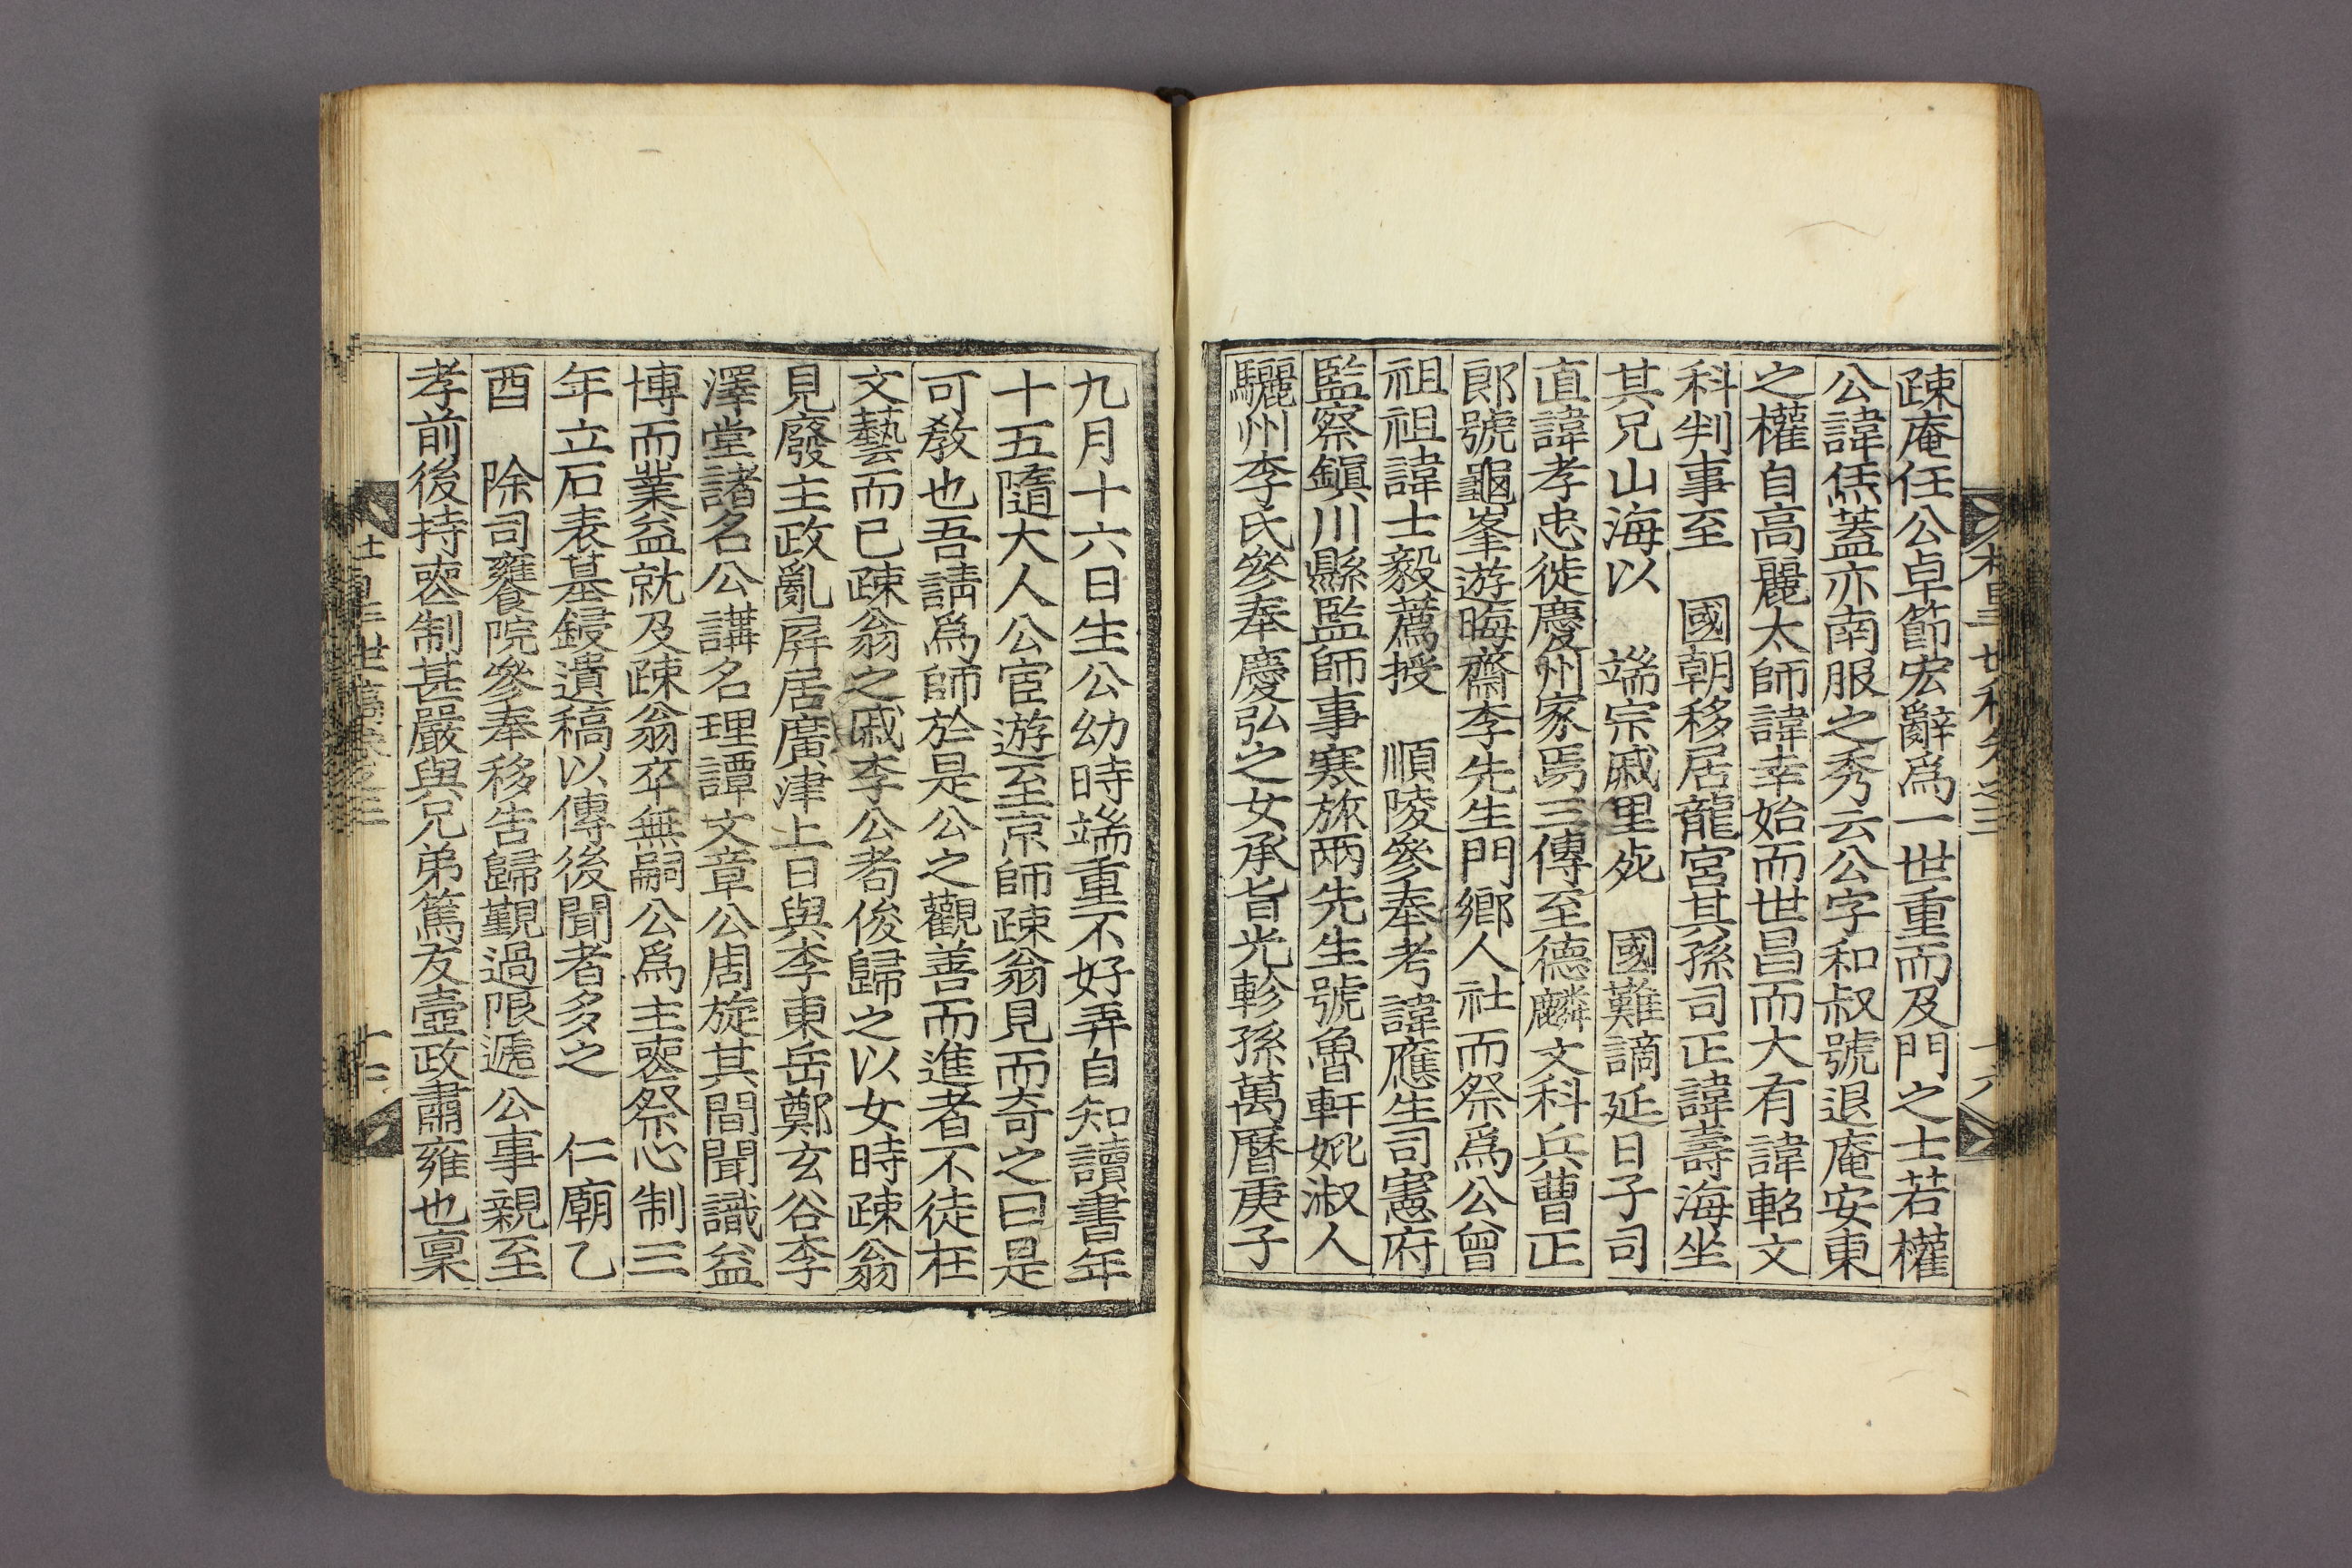 疎庵任公卓節宏辭爲一世重而及門之士若權
公諱烋蓋亦南服之秀云公字和叔號退庵安東
之權自高麗太師諱幸始而世昌而大有諱軺文
科判事至 國朝移居龍宮其孫司正諱壽海坐
其兄山海以 端宗戚里死 國難謫延日子司
直諱孝忠徙慶州家焉三傳至德麟文科兵曹正
郎號龜峯遊晦齋李先生門鄉人社而祭爲公曾
祖祖諱士毅薦授 順陵參奉考諱應生司憲府
監察鎭川縣監師事寒旅兩先生號魯軒妣淑人
驪州李氏參奉慶弘之女承旨光軫孫萬曆庚子
十六
九月十六日生公幼時端重不好弄自知讀書年
十五隨大人公宦遊至京師疎翁見而奇之曰是
可敎也吾請爲師於是公之觀善而進者不徒在
文藝而已疎翁之戚李公耉俊歸之以女時疎翁
見廢主政亂屛居廣津上日與李東岳鄭玄谷李
澤堂諸名公講名理譚文章公周旋其間聞識益
博而業益就及疎翁卒無嗣公爲主喪祭心制三
年立石表墓鋟遺稿以傳後聞者多之 仁廟乙
酉 除司饔院參奉移告歸覲過限遞公事親至
孝前後持喪制甚嚴與兄弟篤友壼政肅雍也稟
世稿卷之三